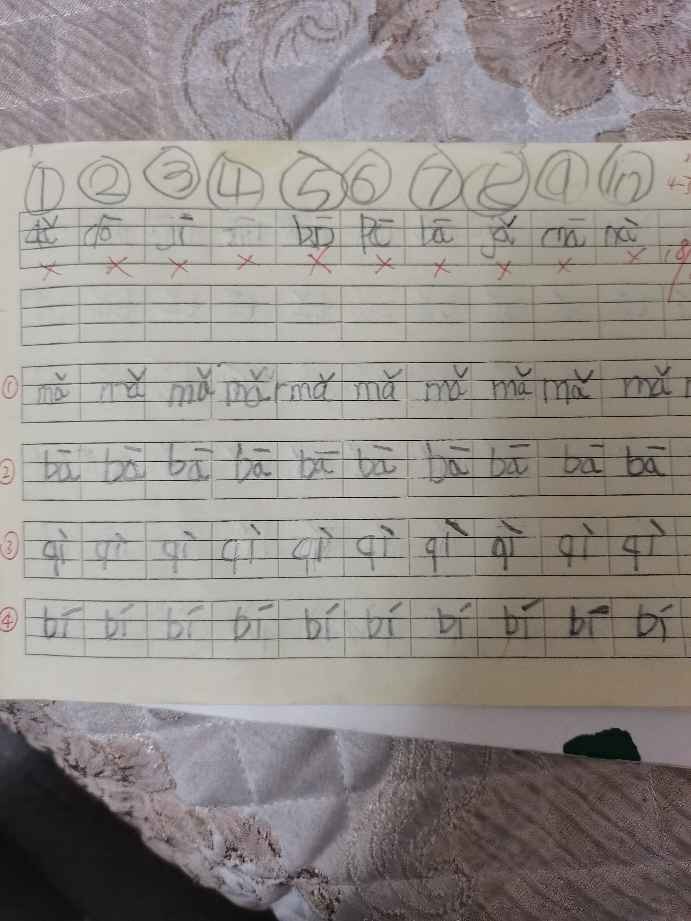 ① ② ③ ④ ⑤ ⑥ ⑦ ⑧ ⑨ ⑩
bō pē bā yǎ mā nà
× × × × × × × × × ×
① mǎ mǎ mǎ mǎ mǎ mǎ mǎ mǎ mǎ mǎ
② bā bā bā bā bā bā bā bā bā bā
③ qì qì qì qì qì qì qì qì qì qì
④ bí bí bí bí bí bí bí bí bí bí